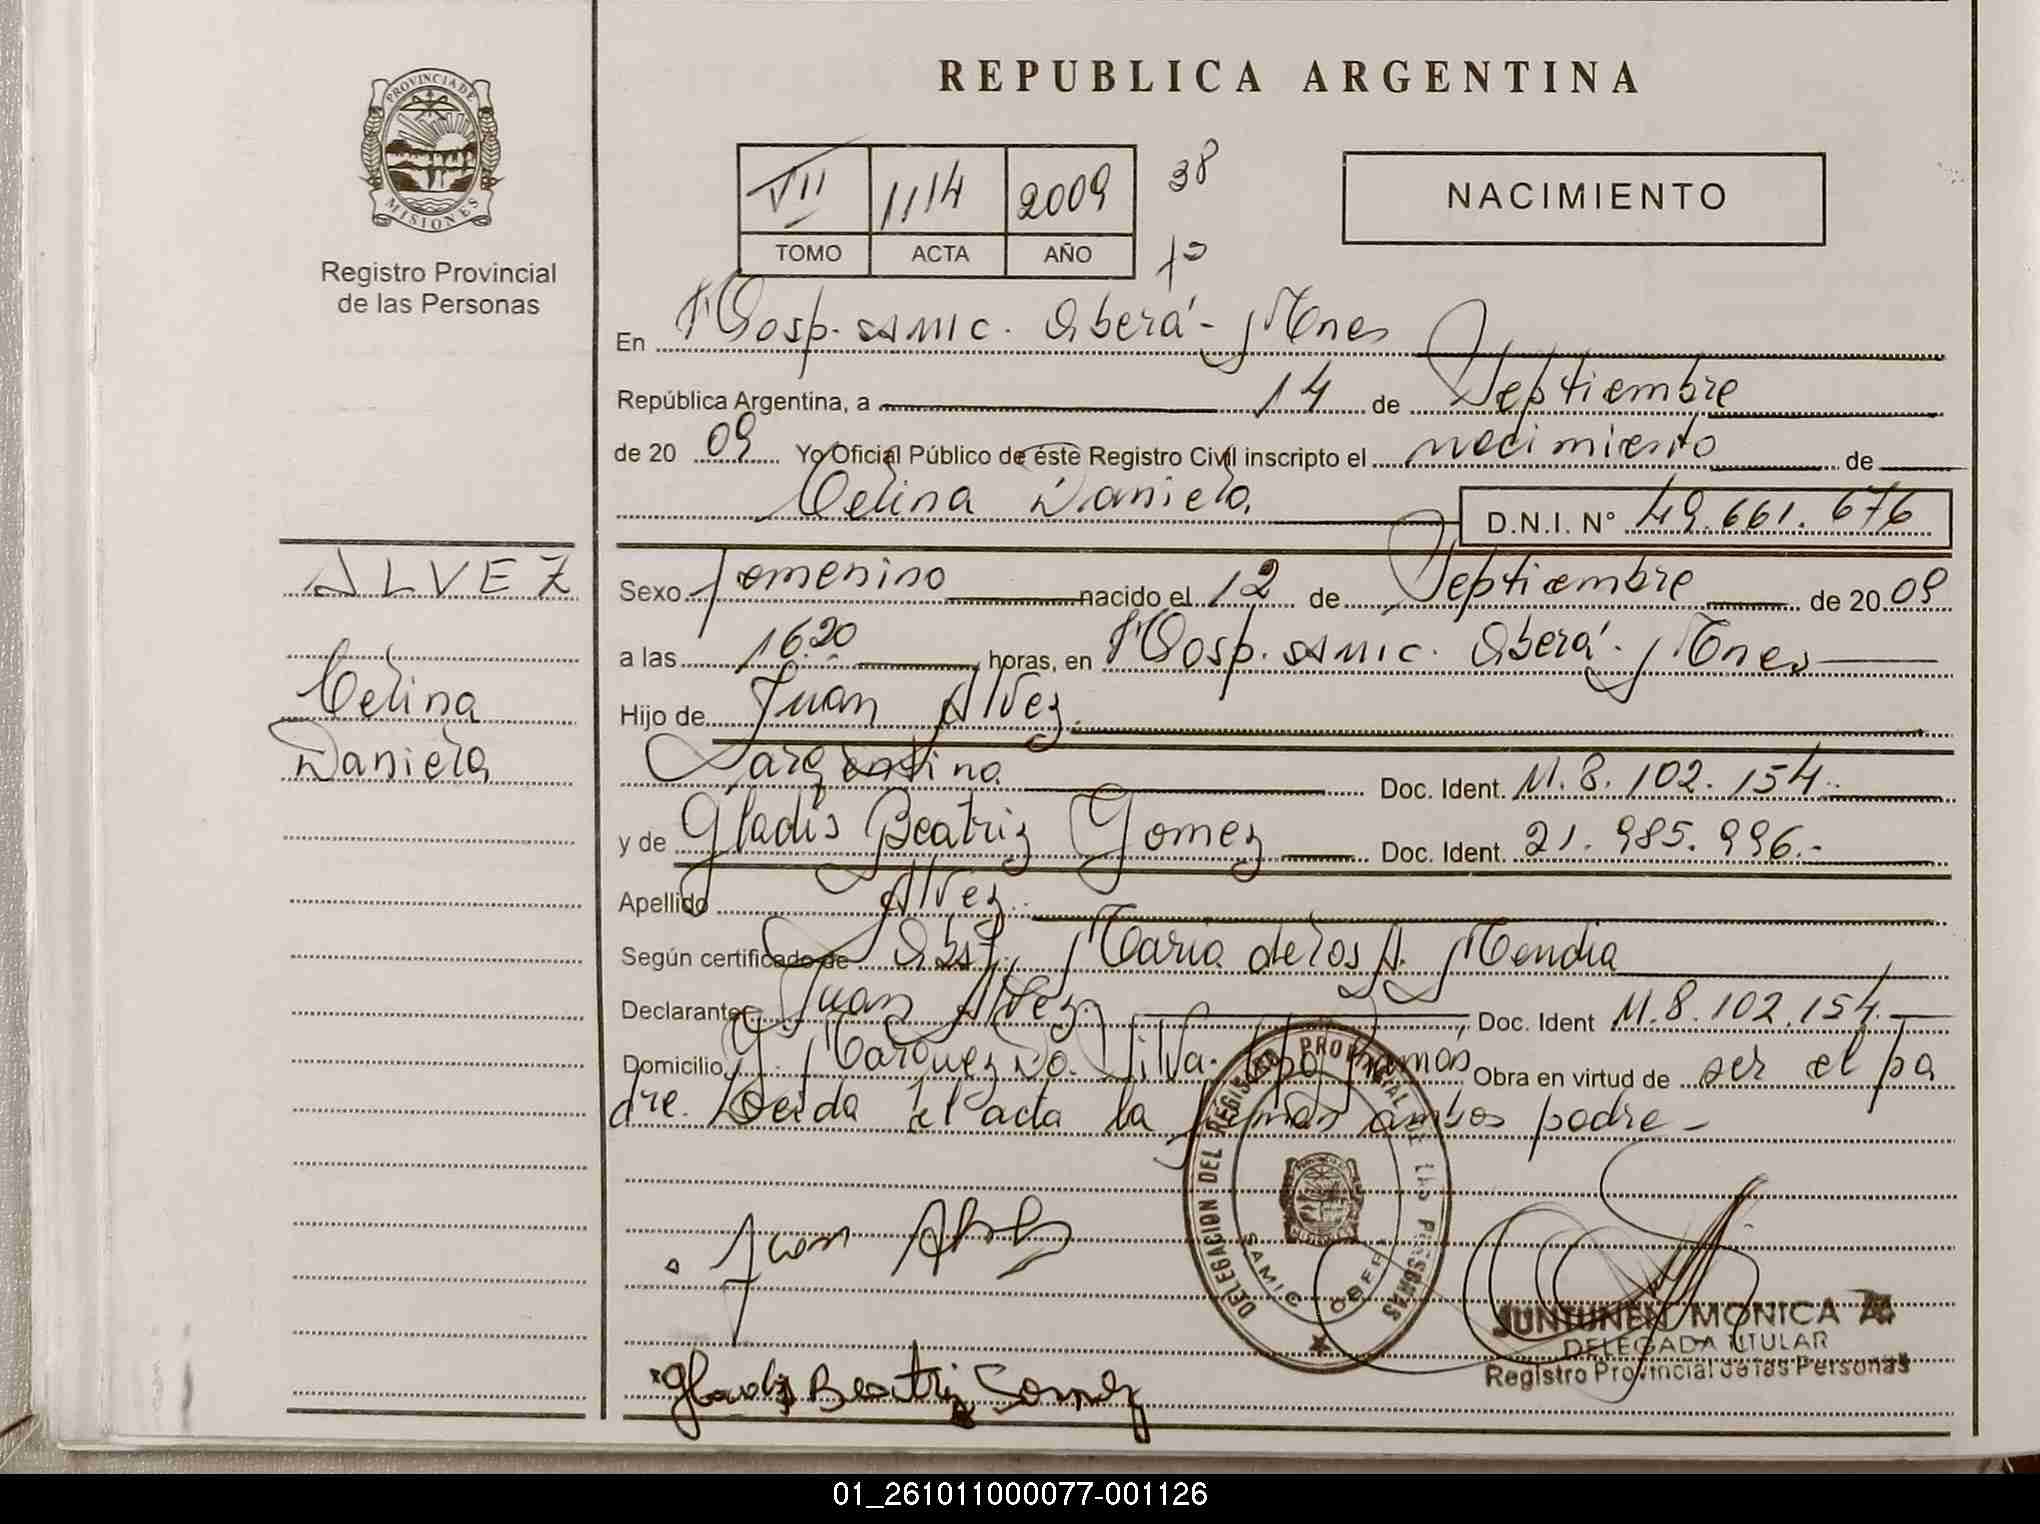 REPUBLICA ARGENTINA
PROVINCIA DE
MISIONES
Registro Provincial
de las Personas
VII 1114 2009 38
TOMO ACTA AÑO
Fº
NACIMIENTO
En Hosp. SAMIC. Oberá - Mnes
República Argentina, a 14 de Septiembre
de 20 09 Yo Oficial Público de éste Registro Civil inscripto el nacimiento de
Celina Daniela D.N.I. Nº 49.661.676
ALVEZ
Celina
Daniela
Sexo femenino nacido el 12 de Septiembre de 20 09
a las 16.20 horas, en Hosp. SAMIC. Oberá - Mnes
Hijo de Juan Alvez.
argentina Doc. Ident. M. 8. 102. 154.-
y de Gladis Beatriz Gomez Doc. Ident. 21. 985. 996.-
Apellido Alvez.
Según certificado de Obst. Maria de los A. Mendia
Declarante Juan Alvez. Doc. Ident M. 8. 102. 154.
Domicilio G. Marquez Silva. Obra en virtud de ser el pa
dre. Leida el acta la firman ambos padre -
Juan
Gladis Beatriz Gomez
DELEGACION DEL REGISTRO PROVINCIAL DE LAS PERSONAS
SAMIC OBERA
JUNTUNEN MONICA
DELEGADA TITULAR
Registro Provincial de las Personas
01_261011000077-001126